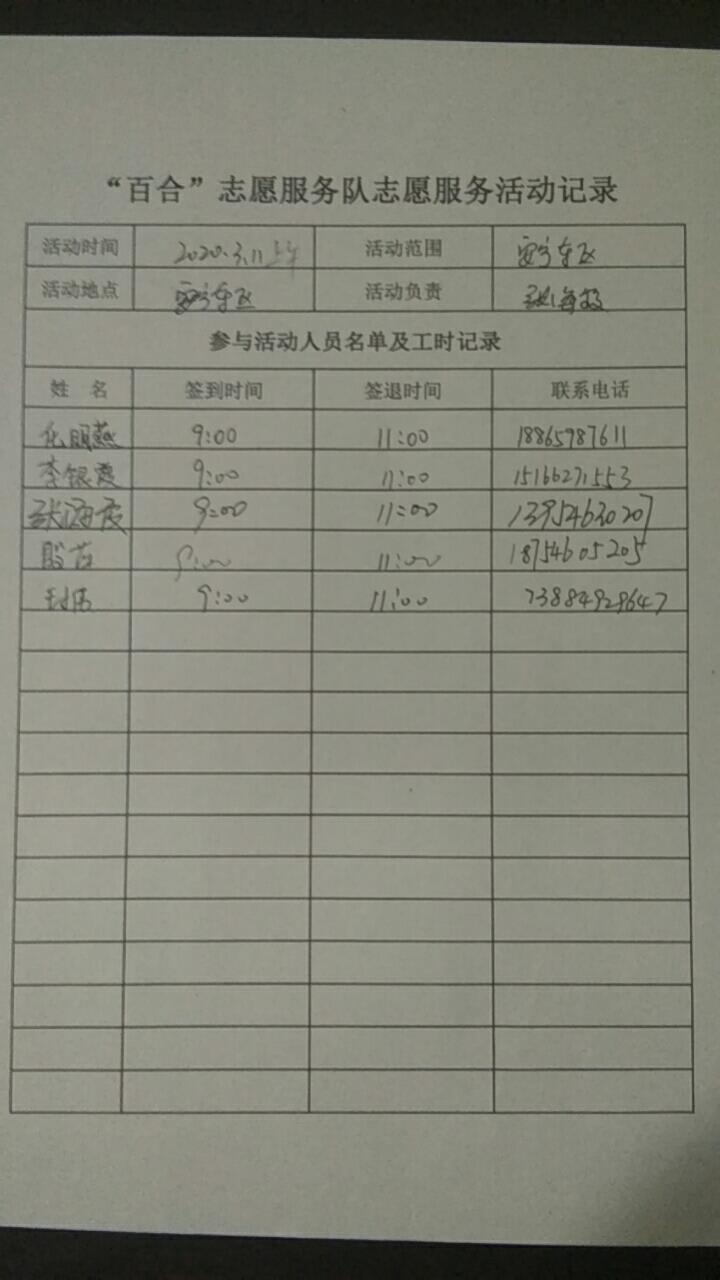 “百合”志愿服务队志愿服务活动记录
活动时间 2020.3.11上午 活动范围
活动地点 活动负责 张海霞
参与活动人员名单及工时记录
姓 名 签到时间 签退时间 联系电话
9:00 11:00 18865987611
李银霞 9:00 11:00 15166271553
张海霞 9:00 11:00 13954630207
殷芸 9:00 11:00 18754605205
9:00 11:00 73884929647